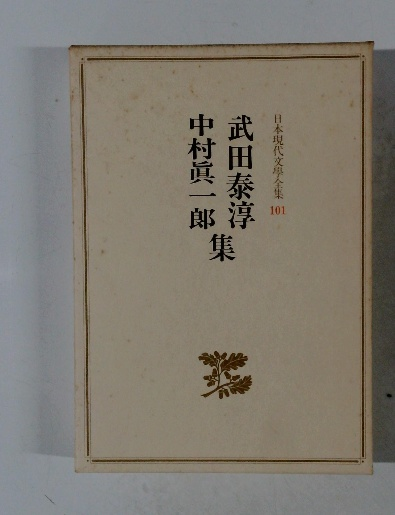 日本現代文學全集 101
武田泰淳
中村眞一郎
集